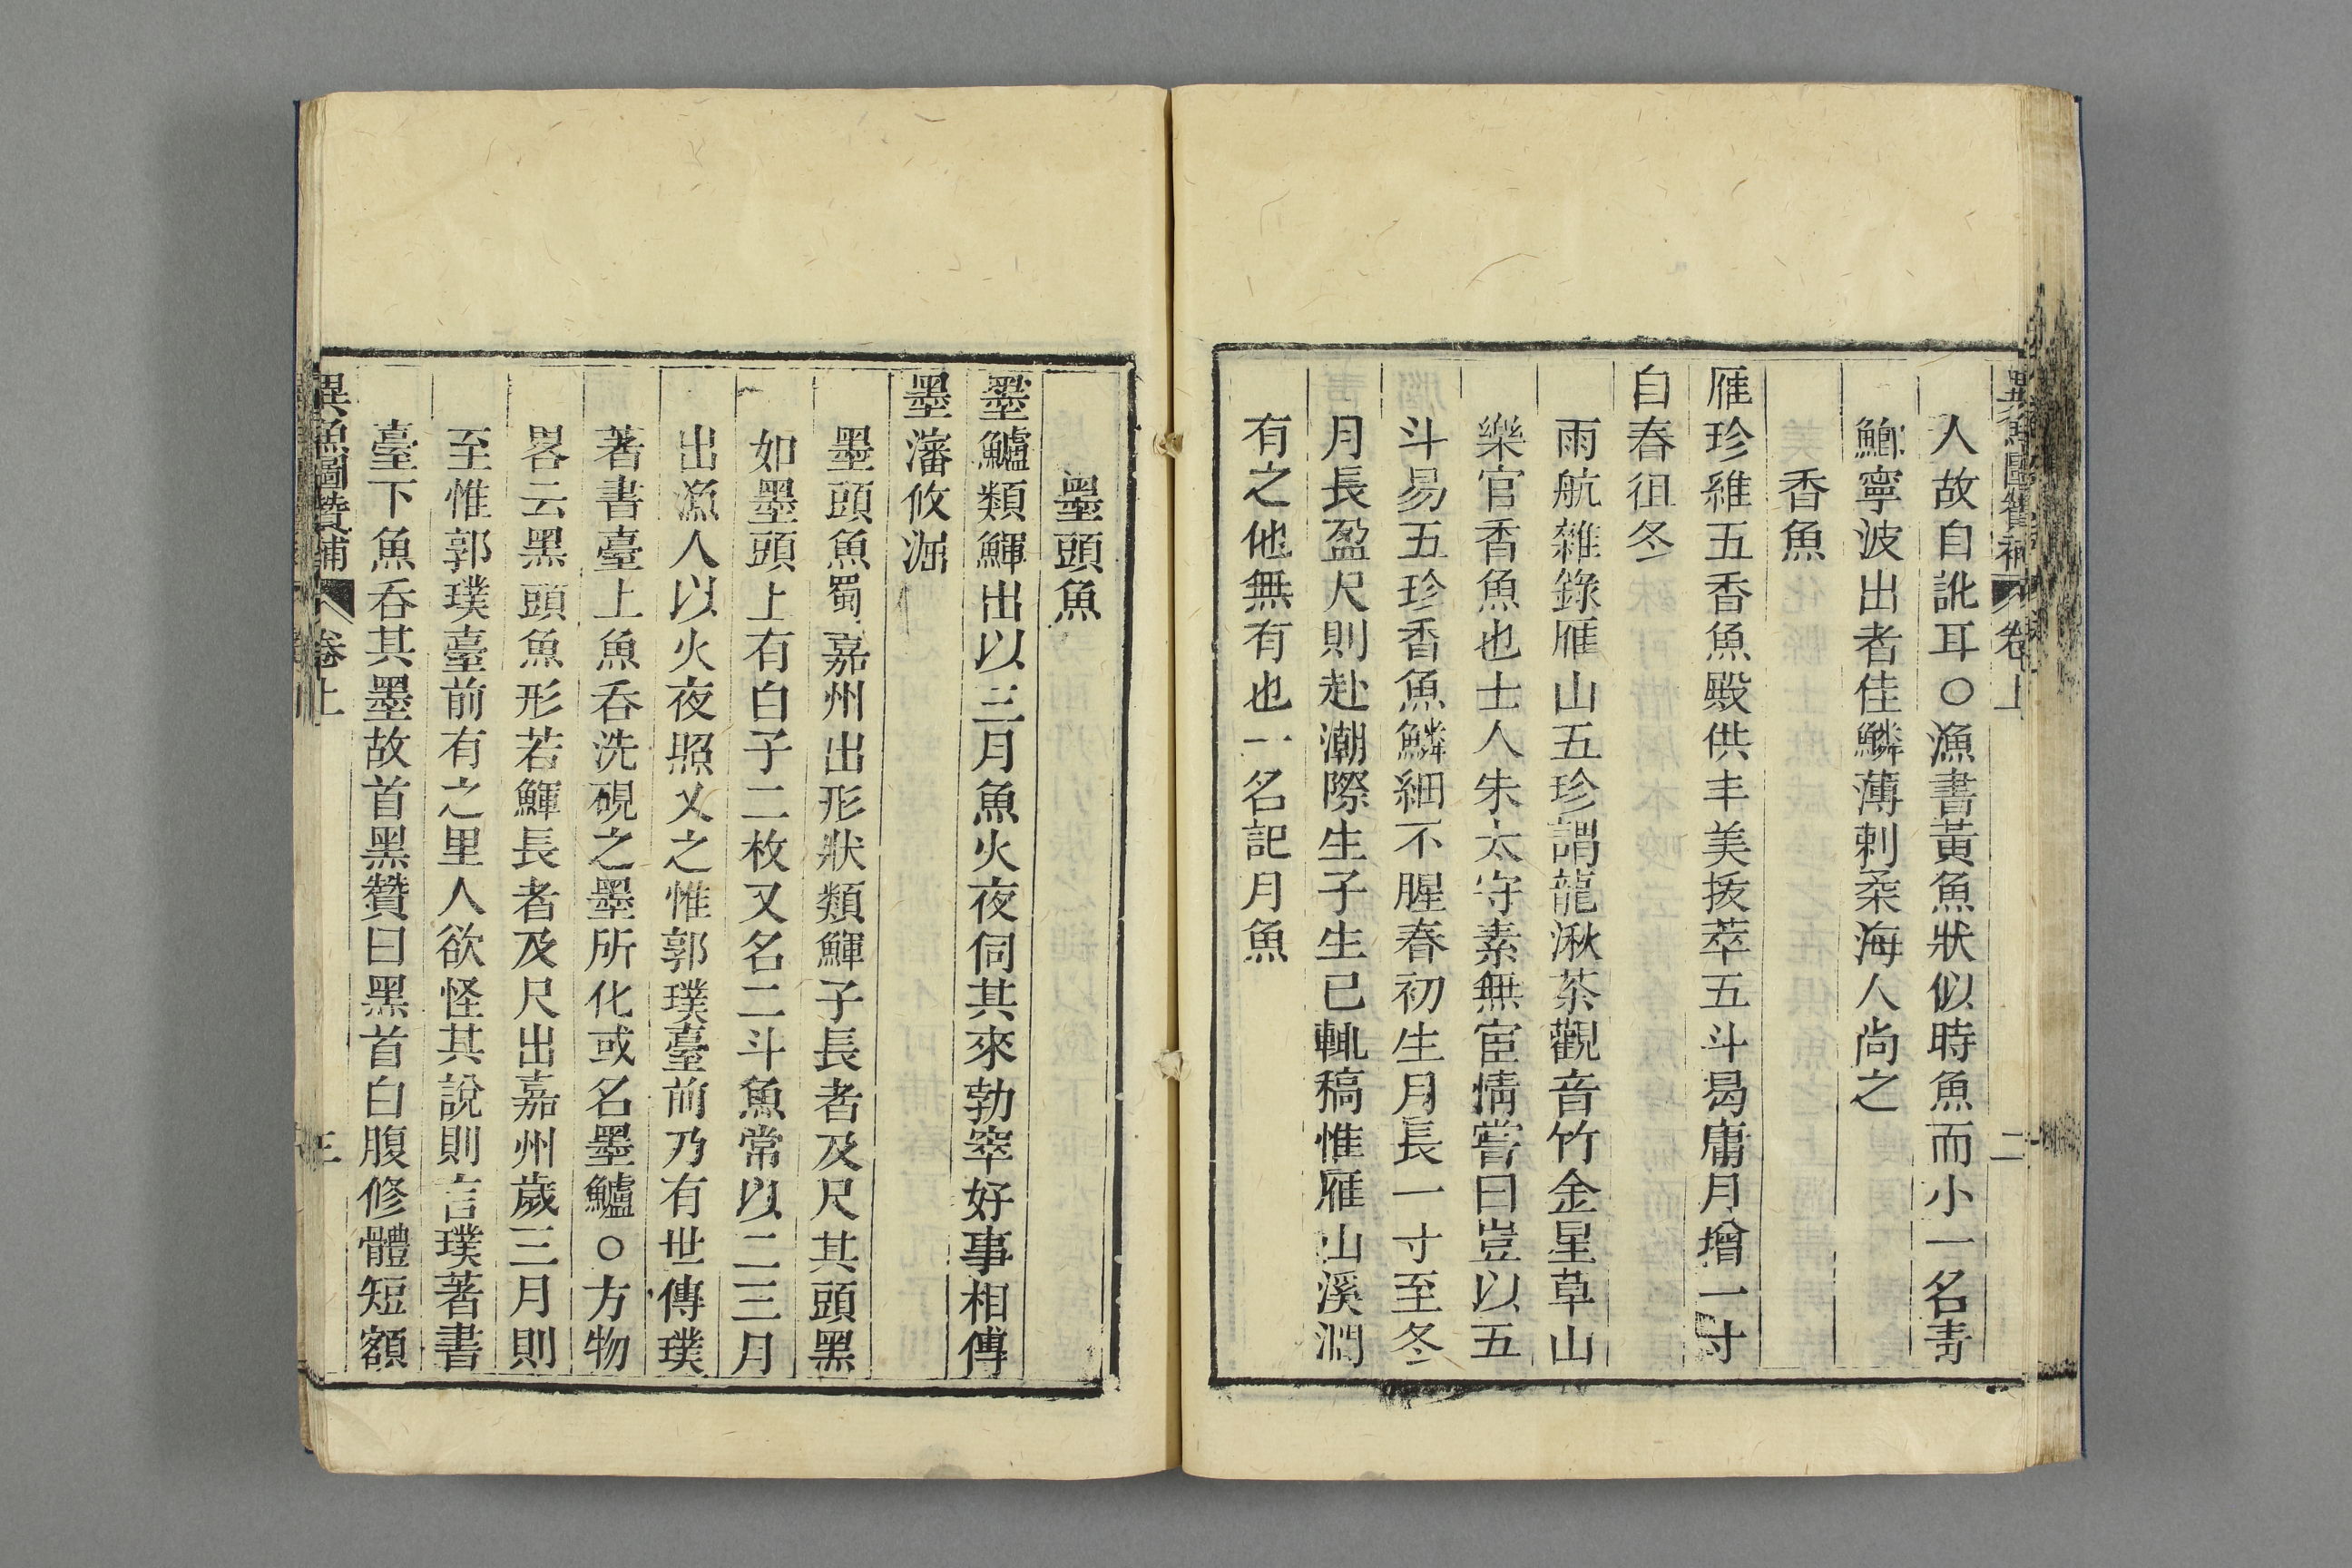 異魚圖贊補 卷上 二
人故自訛耳○漁書黃魚狀似時魚而小一名青
鮑寧波出者佳鱗薄刺柔海人尚之
香魚
雁珍維五香魚殿供丰美拔萃五斗曷庸月增一寸
自春徂冬
雨航雜錄雁山五珍謂龍湫茶觀音竹金星草山
樂官香魚也士人朱太守素無宦情嘗曰豈以五
斗易五珍香魚鱗細不腥春初生月長一寸至冬
月長盈尺則赴潮際生子生已輒稿惟雁山溪澗
有之他無有也一名記月魚
墨頭魚
墨鱸類鯶出以三月魚火夜伺其來勃窣好事相傳
墨瀋攸淈
墨頭魚蜀嘉州出形狀類鯶子長者及尺其頭黑
如墨頭上有白子二枚又名二斗魚常以二三月
出漁人以火夜照乂之惟郭璞臺前乃有世傳璞
著書臺上魚吞洗硯之墨所化或名墨鱸○方物
畧云黑頭魚形若鯶長者及尺出嘉州歲三月則
至惟郭璞臺前有之里人欲怪其說則言璞著書
臺下魚吞其墨故首黑贊曰黑首白腹修體短額
異魚圖贊補 卷上 三